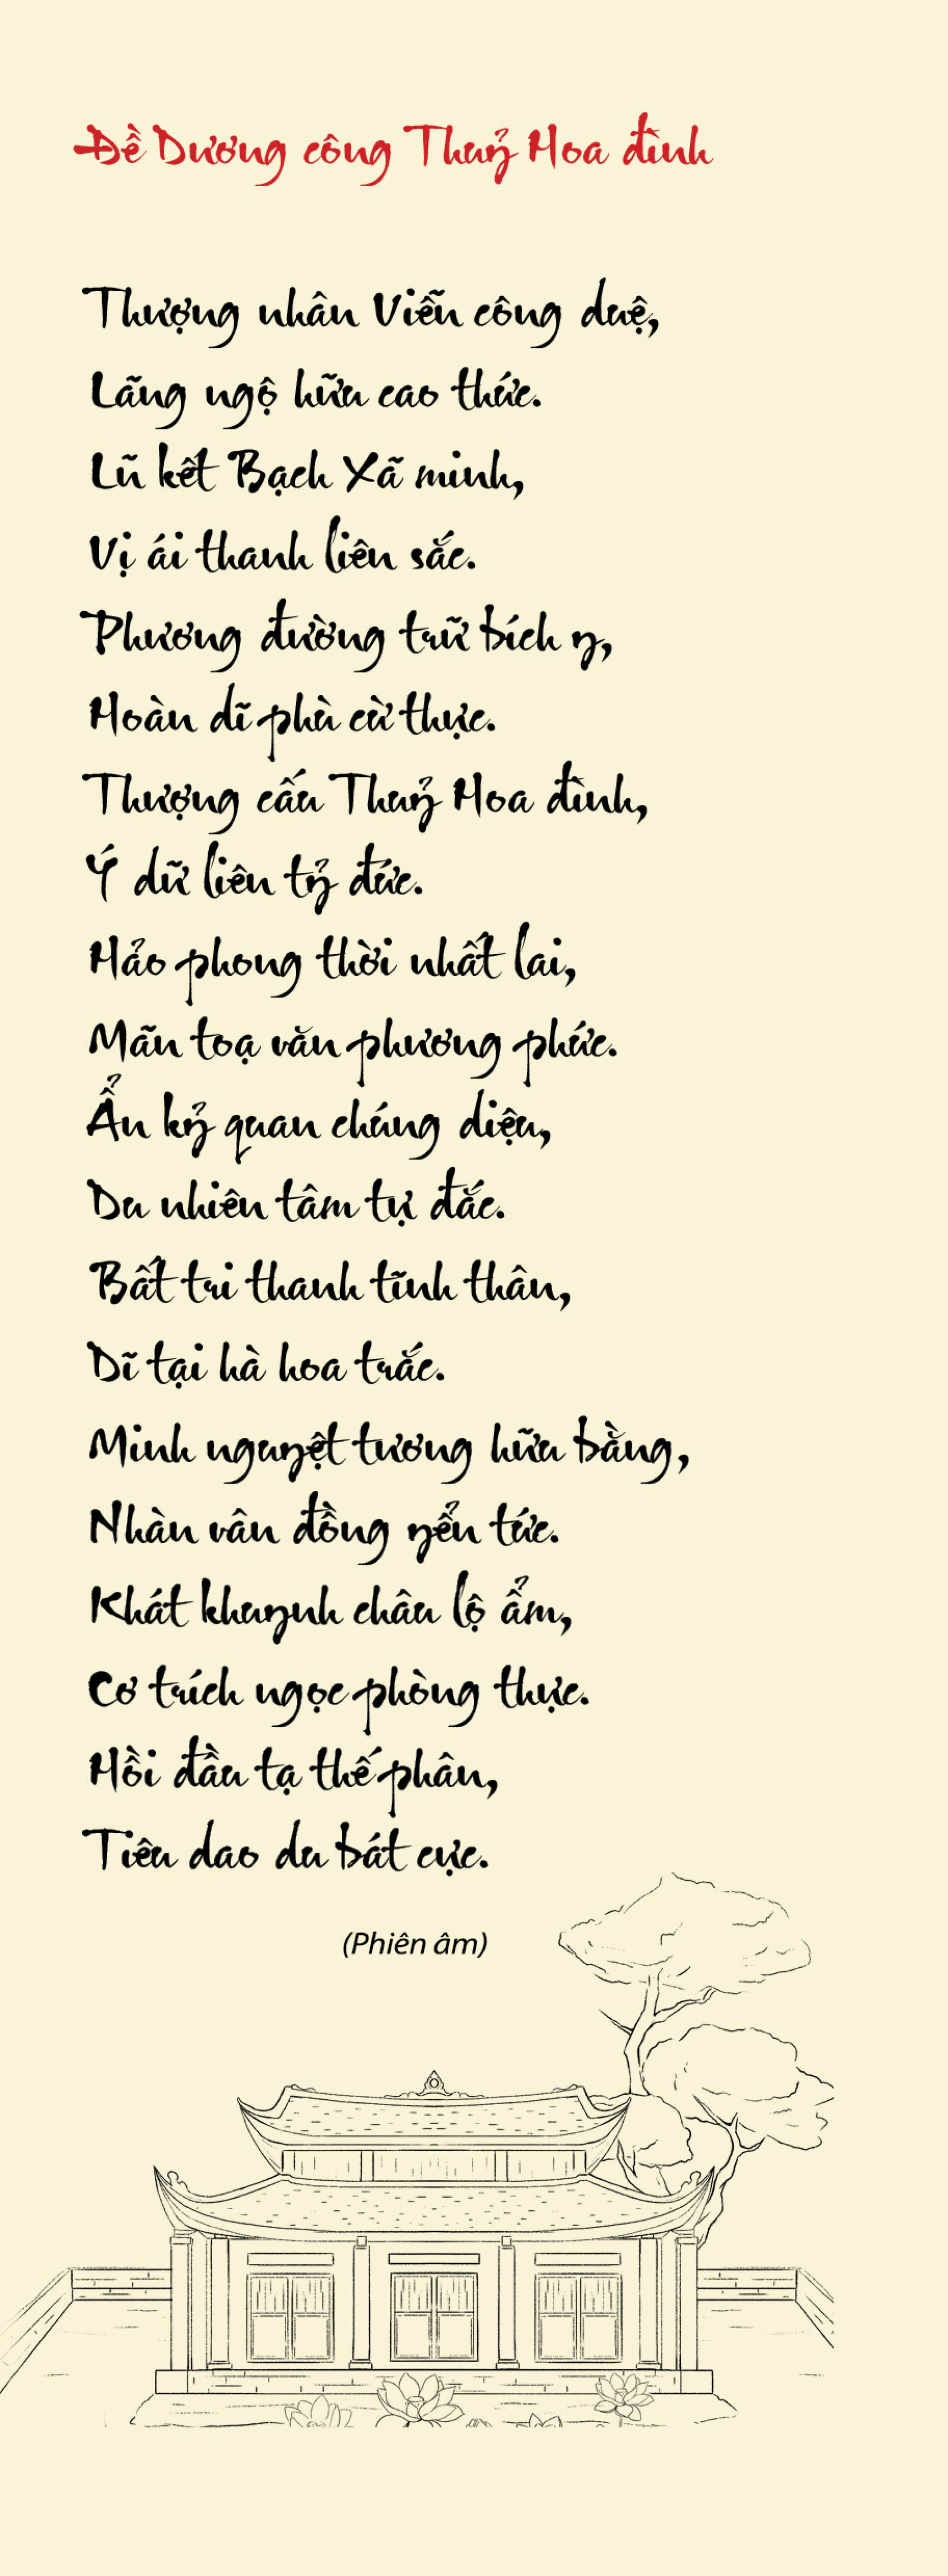 Đề Dương công Thuỷ Hoa đình
Thượng nhân Viễn công duệ,
Lãng ngộ hữu cao thức.
Lũ kết Bạch Xã minh,
Vị ái thanh liên sắc.
Phương đường trữ bích y,
Hoàn dĩ phù cừ thực.
Thượng cấu Thuỷ Hoa đình,
Ý dữ liên tỷ đức.
Hảo phong thời nhất lai,
Mãn toạ văn phương phức.
Ẩn kỷ quan chúng diệu,
Du nhiên tâm tự đắc.
Bất tri thanh tĩnh thân,
Dĩ tại hà hoa trắc.
Minh nguyệt tương hữu bằng,
Nhàn vân đồng yển tức.
Khát khuynh châu lộ ẩm,
Cơ trích ngọc phòng thực.
Hồi đầu tạ thế phân,
Tiêu dao du bát cực.
(Phiên âm)